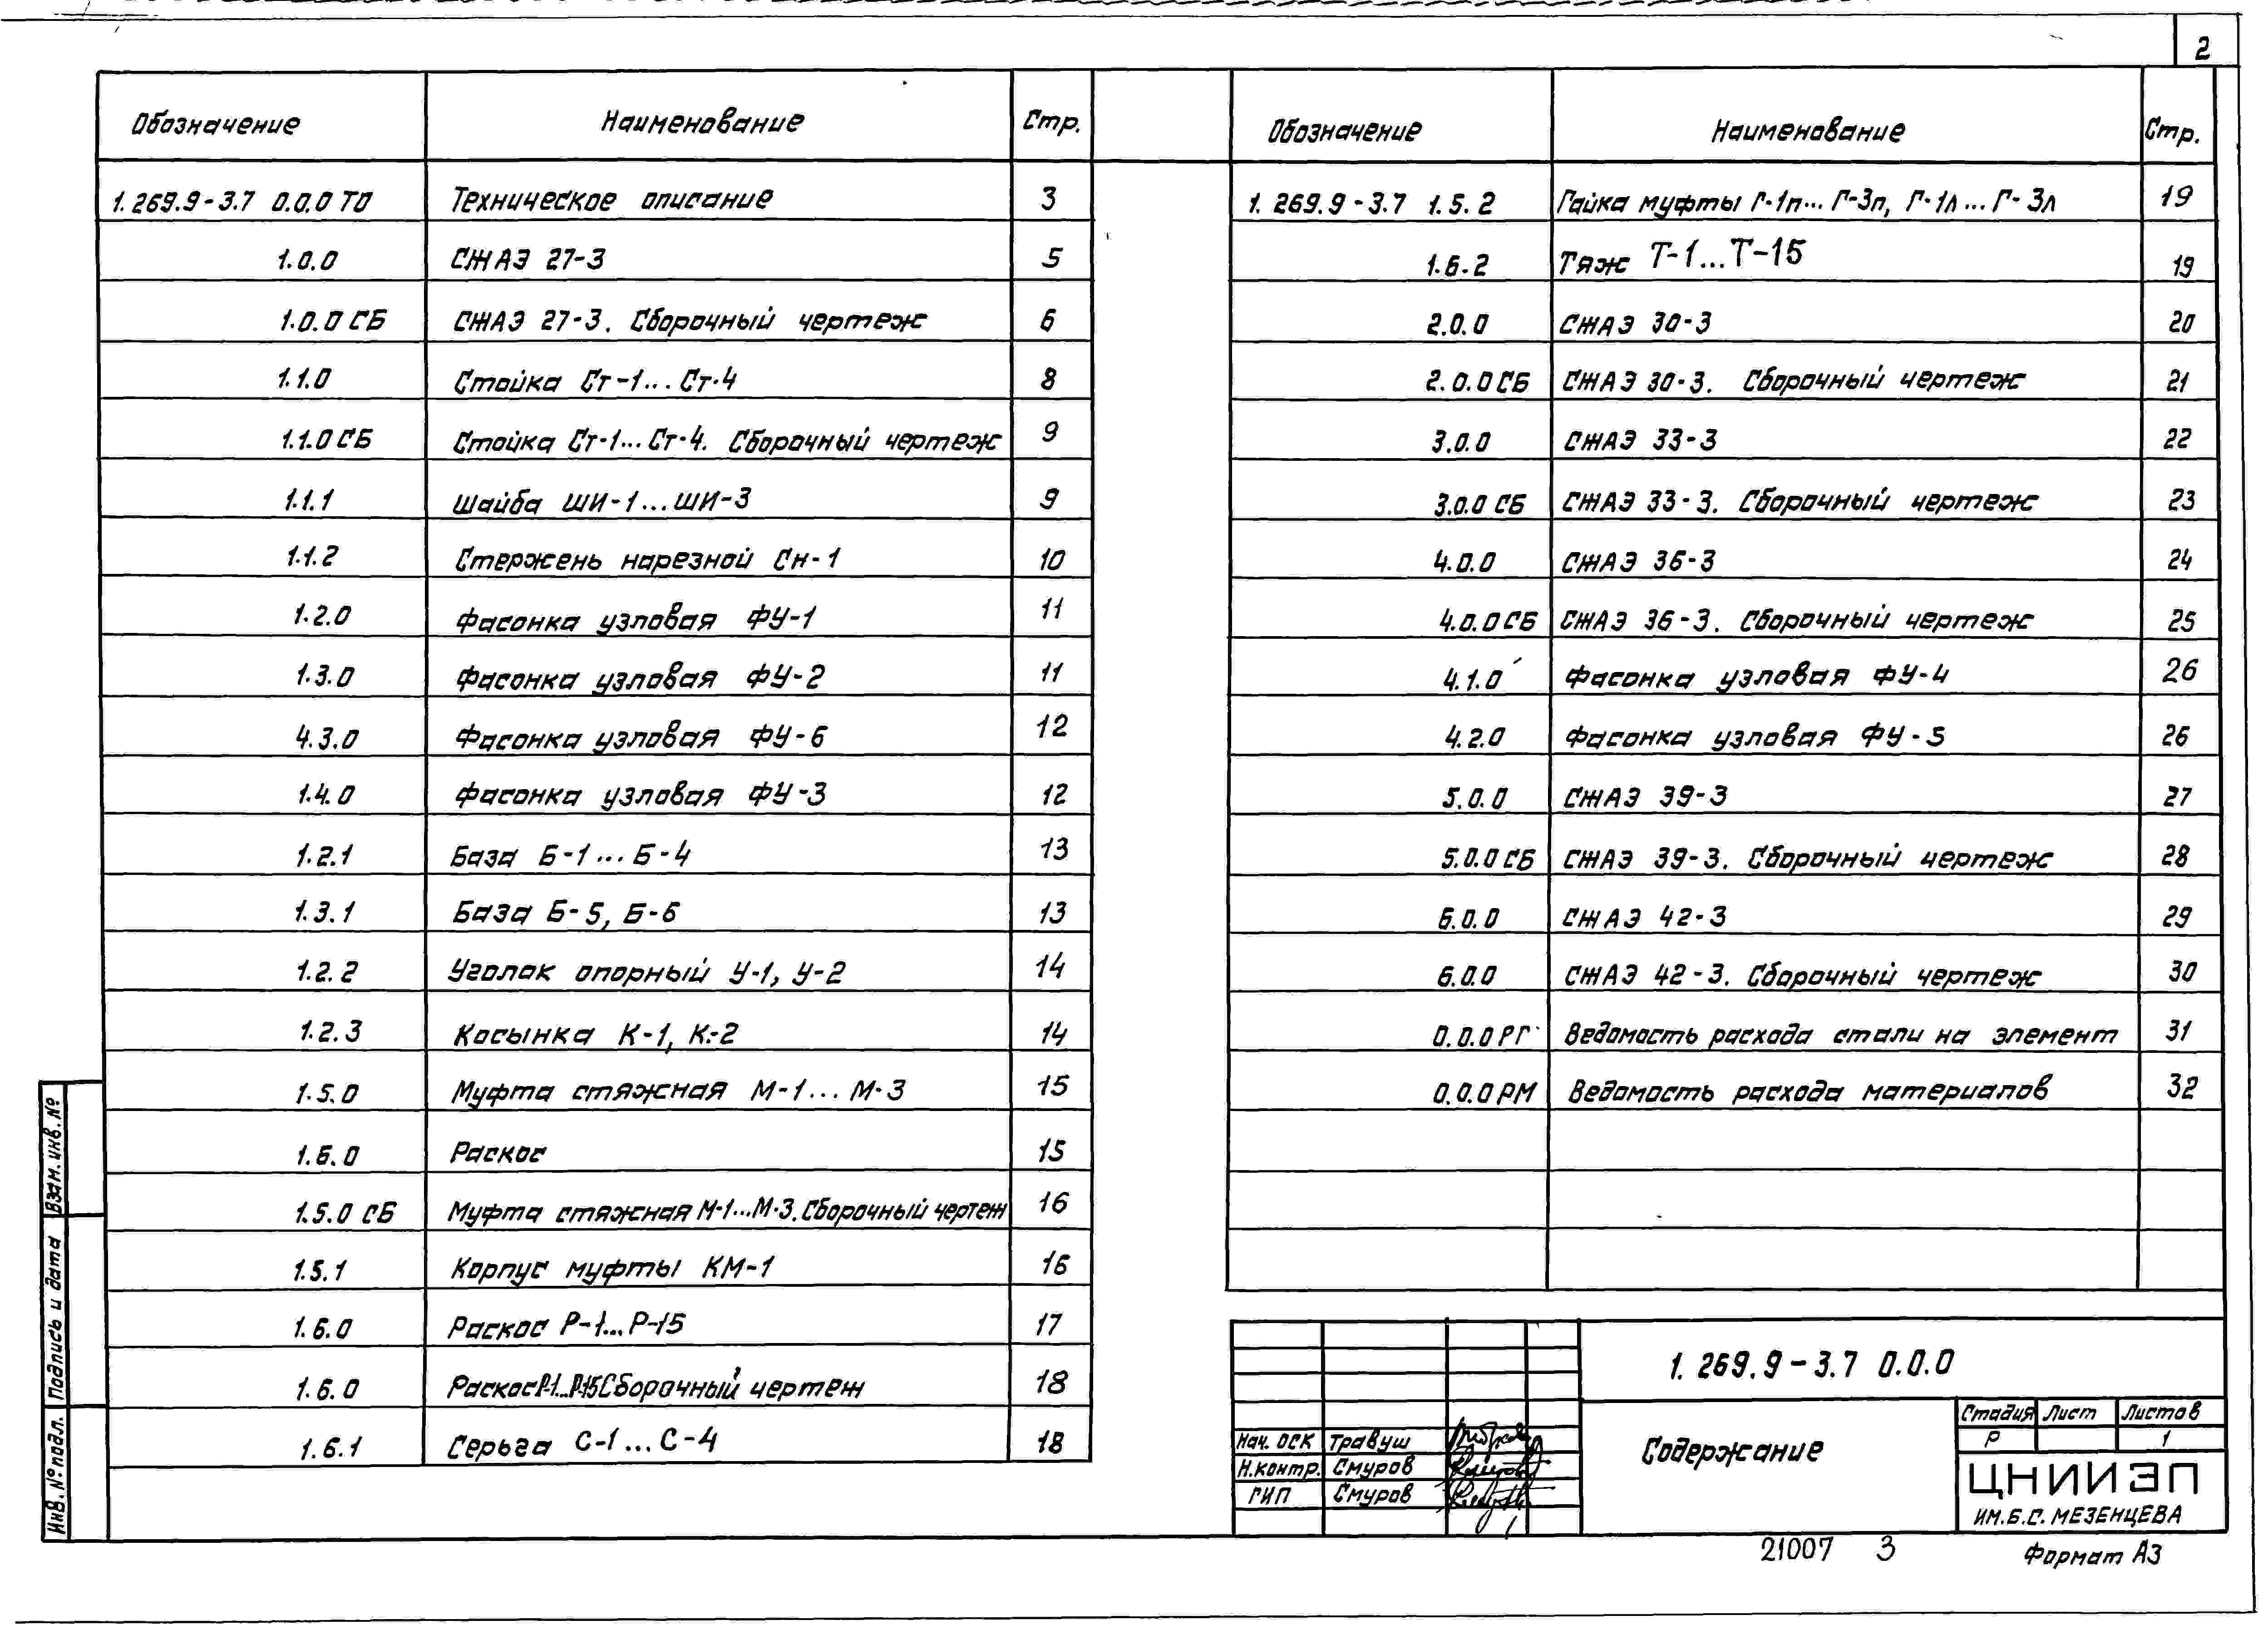 2
Обозначение Наименование Стр.
1.269.9-3.7 0.0.0 ТО Техническое описание 3
1.0.0 СЖАЭ 27-3 5
1.0.0 СБ СЖАЭ 27-3. Сборочный чертеж 6
1.1.0 Стойка Ст-1...Ст-4 8
1.1.0 СБ Стойка Ст-1...Ст-4. Сборочный чертеж 9
1.1.1 Шайба ШИ-1...ШИ-3 9
1.1.2 Стержень нарезной Сн-1 10
1.2.0 Фасонка узловая ФУ-1 11
1.3.0 Фасонка узловая ФУ-2 11
4.3.0 Фасонка узловая ФУ-6 12
1.4.0 Фасонка узловая ФУ-3 12
1.2.1 База Б-1...Б-4 13
1.3.1 База Б-5, Б-6 13
1.2.2 Уголок опорный У-1, У-2 14
1.2.3 Косынка К-1, К-2 14
1.5.0 Муфта стяжная М-1...М-3 15
1.6.0 Раскос 15
1.5.0 СБ Муфта стяжная М-1...М-3. Сборочный чертеж 16
1.5.1 Корпус муфты КМ-1 16
1.6.0 Раскос Р-1...Р-15 17
1.6.0 Раскос Р-1...Р-15 Сборочный чертеж 18
1.6.1 Серьга С-1...С-4 18
Обозначение Наименование Стр.
1.269.9-3.7 1.5.2 Гайка муфты Г-1п...Г-3п, Г-1л...Г-3л 19
1.6.2 Тяж Т-1...Т-15 19
2.0.0 СЖАЭ 30-3 20
2.0.0 СБ СЖАЭ 30-3. Сборочный чертеж 21
3.0.0 СЖАЭ 33-3 22
3.0.0 СБ СЖАЭ 33-3. Сборочный чертеж 23
4.0.0 СЖАЭ 36-3 24
4.0.0 СБ СЖАЭ 36-3. Сборочный чертеж 25
4.1.0 Фасонка узловая ФУ-4 26
4.2.0 Фасонка узловая ФУ-5 26
5.0.0 СЖАЭ 39-3 27
5.0.0 СБ СЖАЭ 39-3. Сборочный чертеж 28
6.0.0 СЖАЭ 42-3 29
6.0.0 СЖАЭ 42-3. Сборочный чертеж 30
0.0.0 РГ Ведомость расхода стали на элемент 31
0.0.0 РМ Ведомость расхода материалов 32
Взам. инв. №
Подпись и дата
Инв. № подл.
1.269.9-3.7 0.0.0
Содержание
Стадия Лист Листов
Р 1
Нач. ОСК Травуш
Н.контр. Смуров
ГИП Смуров
ЦНИИЭП
ИМ.Б.С. МЕЗЕНЦЕВА
21007 3
Формат А3